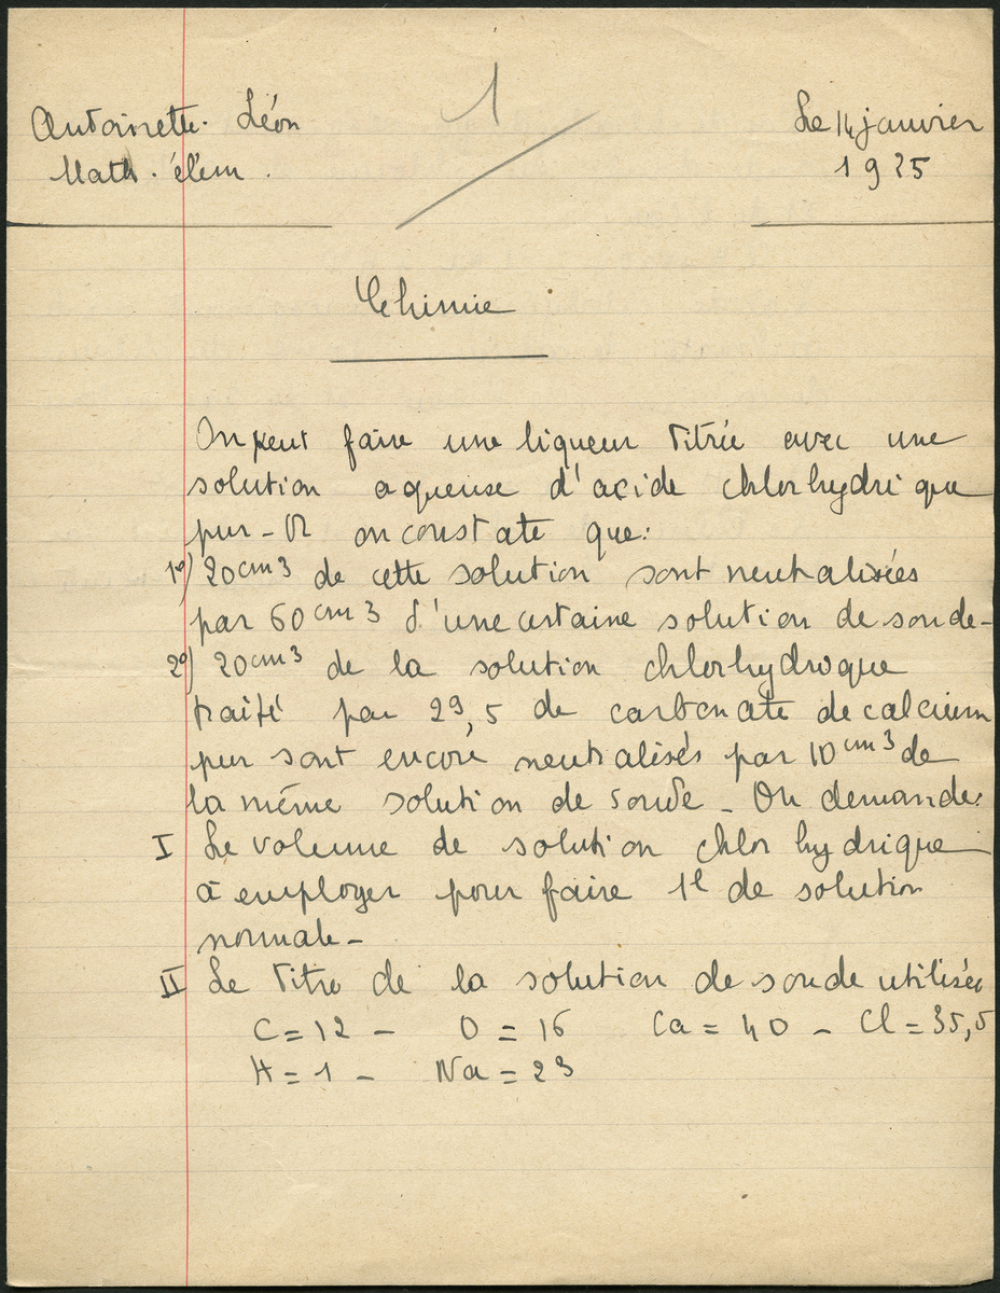 1
Antoinette Léon
Le 14 janvier
Math. élem.
1925
Chimie
On peut faire une liqueur titrée avec une
solution aqueuse d'acide chlorhydrique
pur - Or on constate que:
1º) 20cm3 de cette solution sont neutralisées
par 60cm3 d'une certaine solution de soude-
2º) 20cm3 de la solution chlorhydroque
traité par 2g,5 de carbonate de calcium
pur sont encore neutralisés par 10cm3 de
la même solution de soude - On demande:
I Le volume de solution chlorhydrique
à employer pour faire 1l de solution
normale -
II Le titre de la solution de soude utilisée
C = 12 - O = 16 Ca = 40 - Cl = 35,5
H = 1 - Na = 23